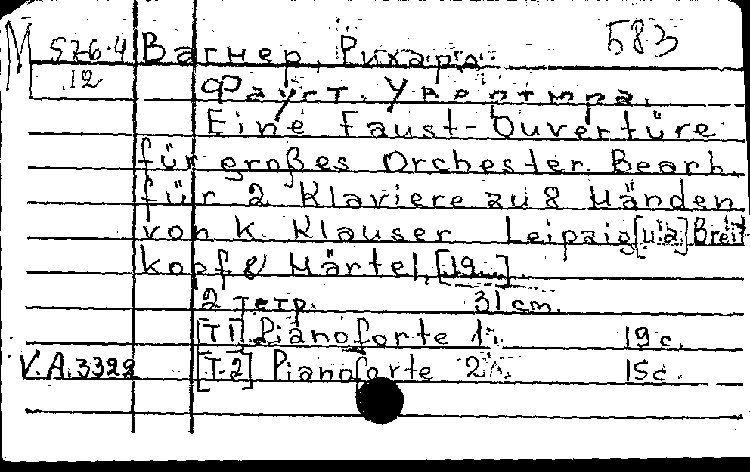 583
М 526.4 Вагнер, Рихард.
12 Фауст. Увертюра.
Eine Faust-Ouvertüre
für großes Orchester. Bearb.
für 2 Klaviere zu 8 Händen
von K. Klauser Leipzig [u.a.] Breit
kopf & Härtel, [19...].
2 тетр. 31 cm.
[Т.1] Pianoforte 1. 19 с.
V.A.3322 [Т.2] Pianoforte 2. 15 с.